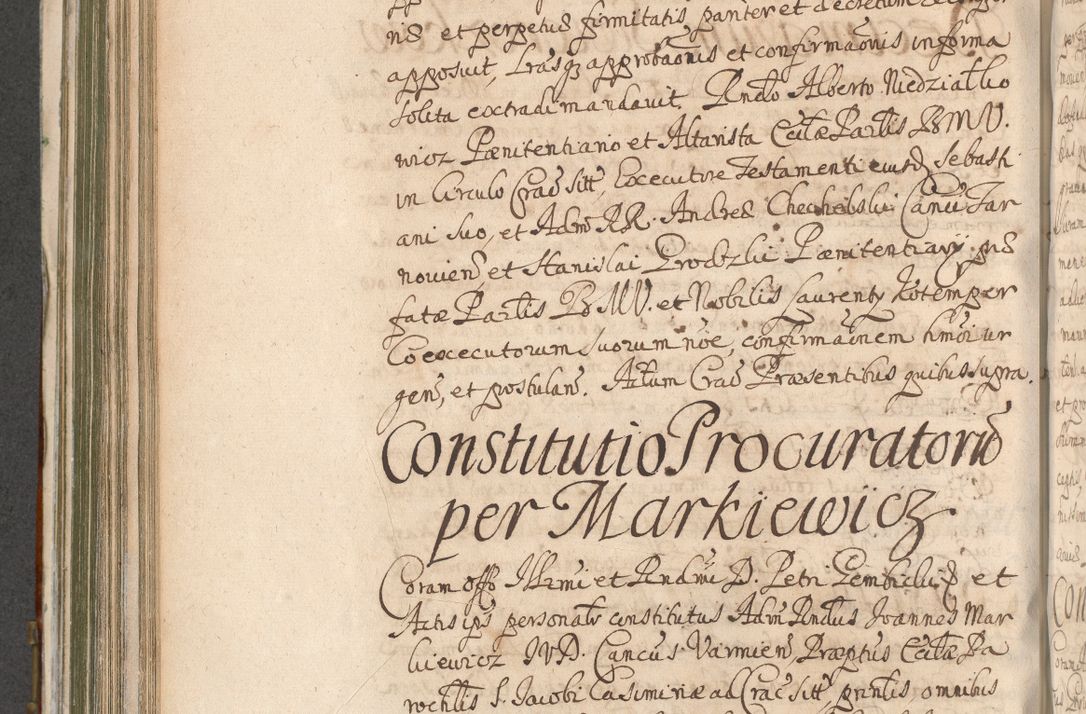 ris et perpetus firmitatis pariter et decretum
apposuit, Lrasq approbaonis et confirmaonis informa
solita extradi mandavit. Rndo Alberto Niedziałko
wicz Pænitentiario et Altarista Eccłæ Parlis BMV.
in Circulo Crac sitt Executore Testamenti eiusd Sebasti
ani suo, et Adm RR. Andreæ Chechelski Canci Tar
novien, et Stanislai Brodzki Pænitentiarij præ
fatæ Parlis BMV. et Nobilis Laurenty Kotemper
Coexecutorum suorum noe, confirmaonem hmoi ur
gen, et postulan. Actum Crac Præsentibus quibus supra.
Constitutio Procuratorū
per Markiewicz
Coram offo Illrmi et Rndmi D. Petri Gembicki et
Actis ips personalr constitutus Adm Rndus Joannes Mar
kiewicz IVD. Cancus Varmien, Præptus Eccłæ Pa
rochlis S. Jacobi Casimiriæ ad Crac sitt, pntlis omnibus